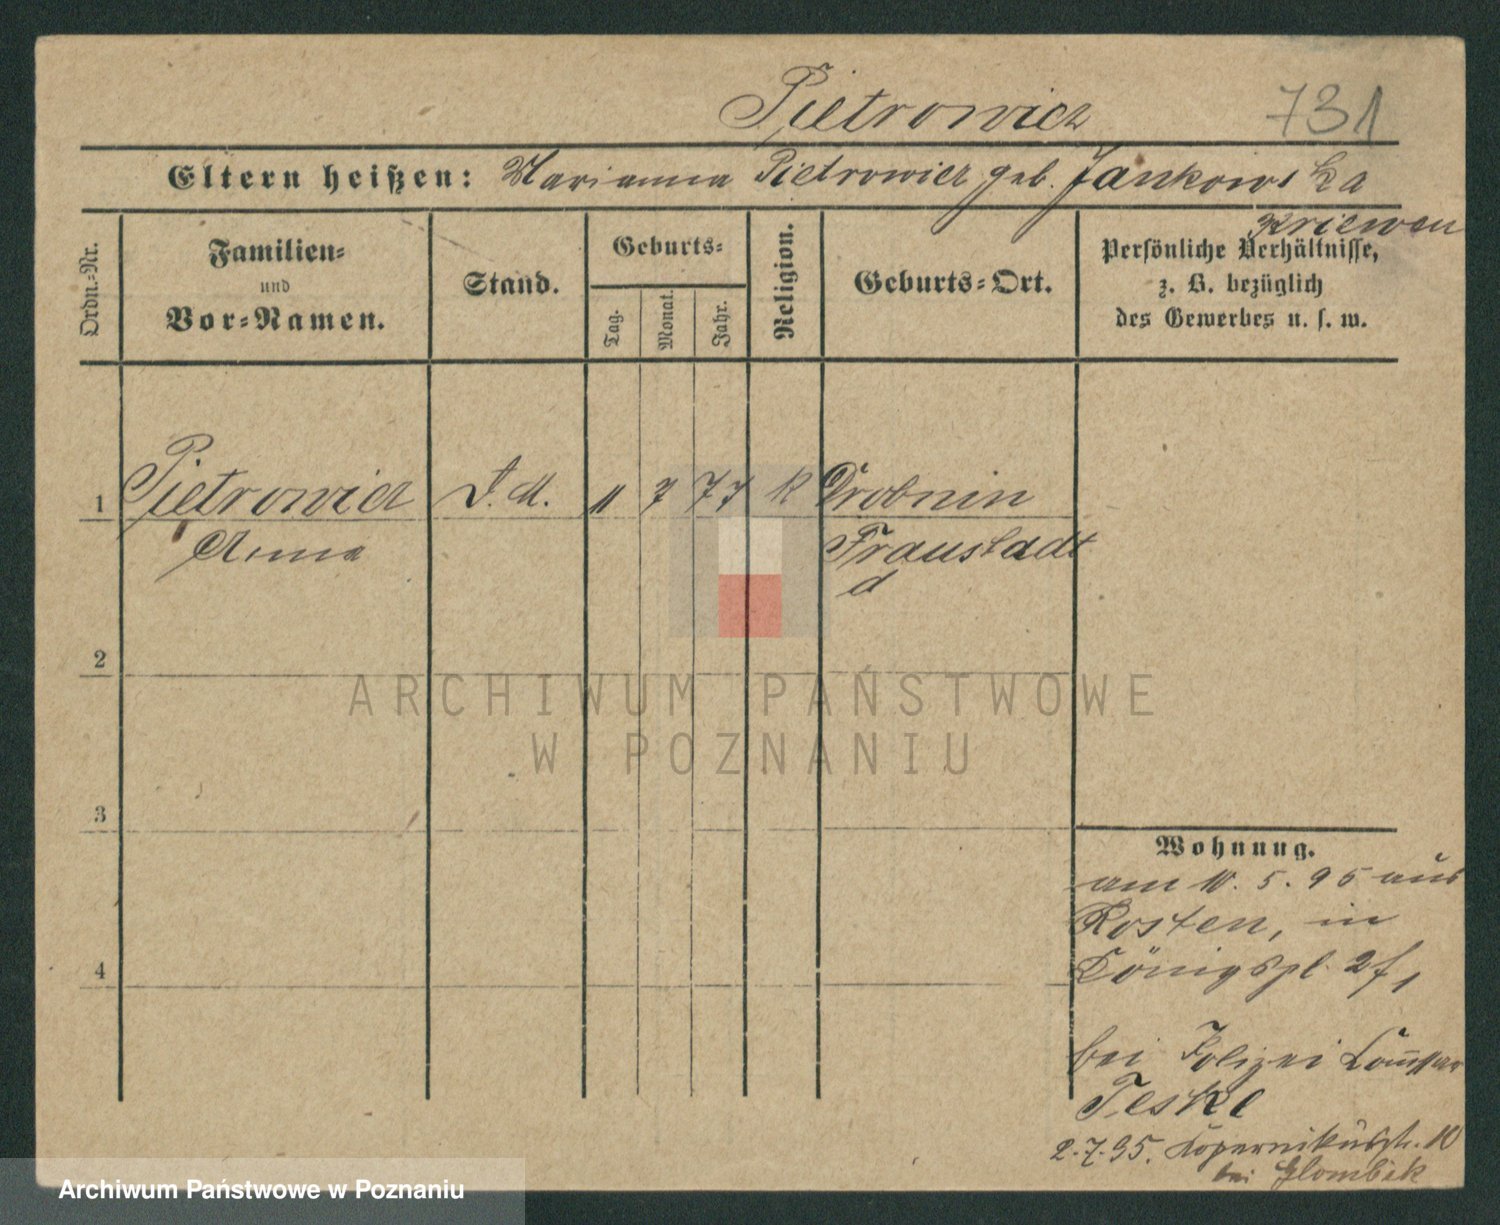 Pietrowicz 731
Eltern heißen: Marianna Pietrowicz geb. Jankowska
Kriewen
Ordn.-Nr.
Familien-
und
Vor-Namen.
Stand.
Geburts-
Tag.
Monat.
Jahr.
Religion.
Geburts-Ort.
Persönliche Verhältnisse,
z. B. bezüglich
des Gewerbes u. s. w.
1 Pietrowicz D. M. 11 7 77 k Drobnin
Anna Fraustadt
d
2
ARCHIWUM PAŃSTWOWE
W POZNANIU
3
Wohnung.
am 10. 5. 95 aus
Kosten, in
4 Königspl. 2
bei Polizei Commssar
Teske
2.7.95. Kopernikusstr. 10
bei Glombek
Archiwum Państwowe w Poznaniu